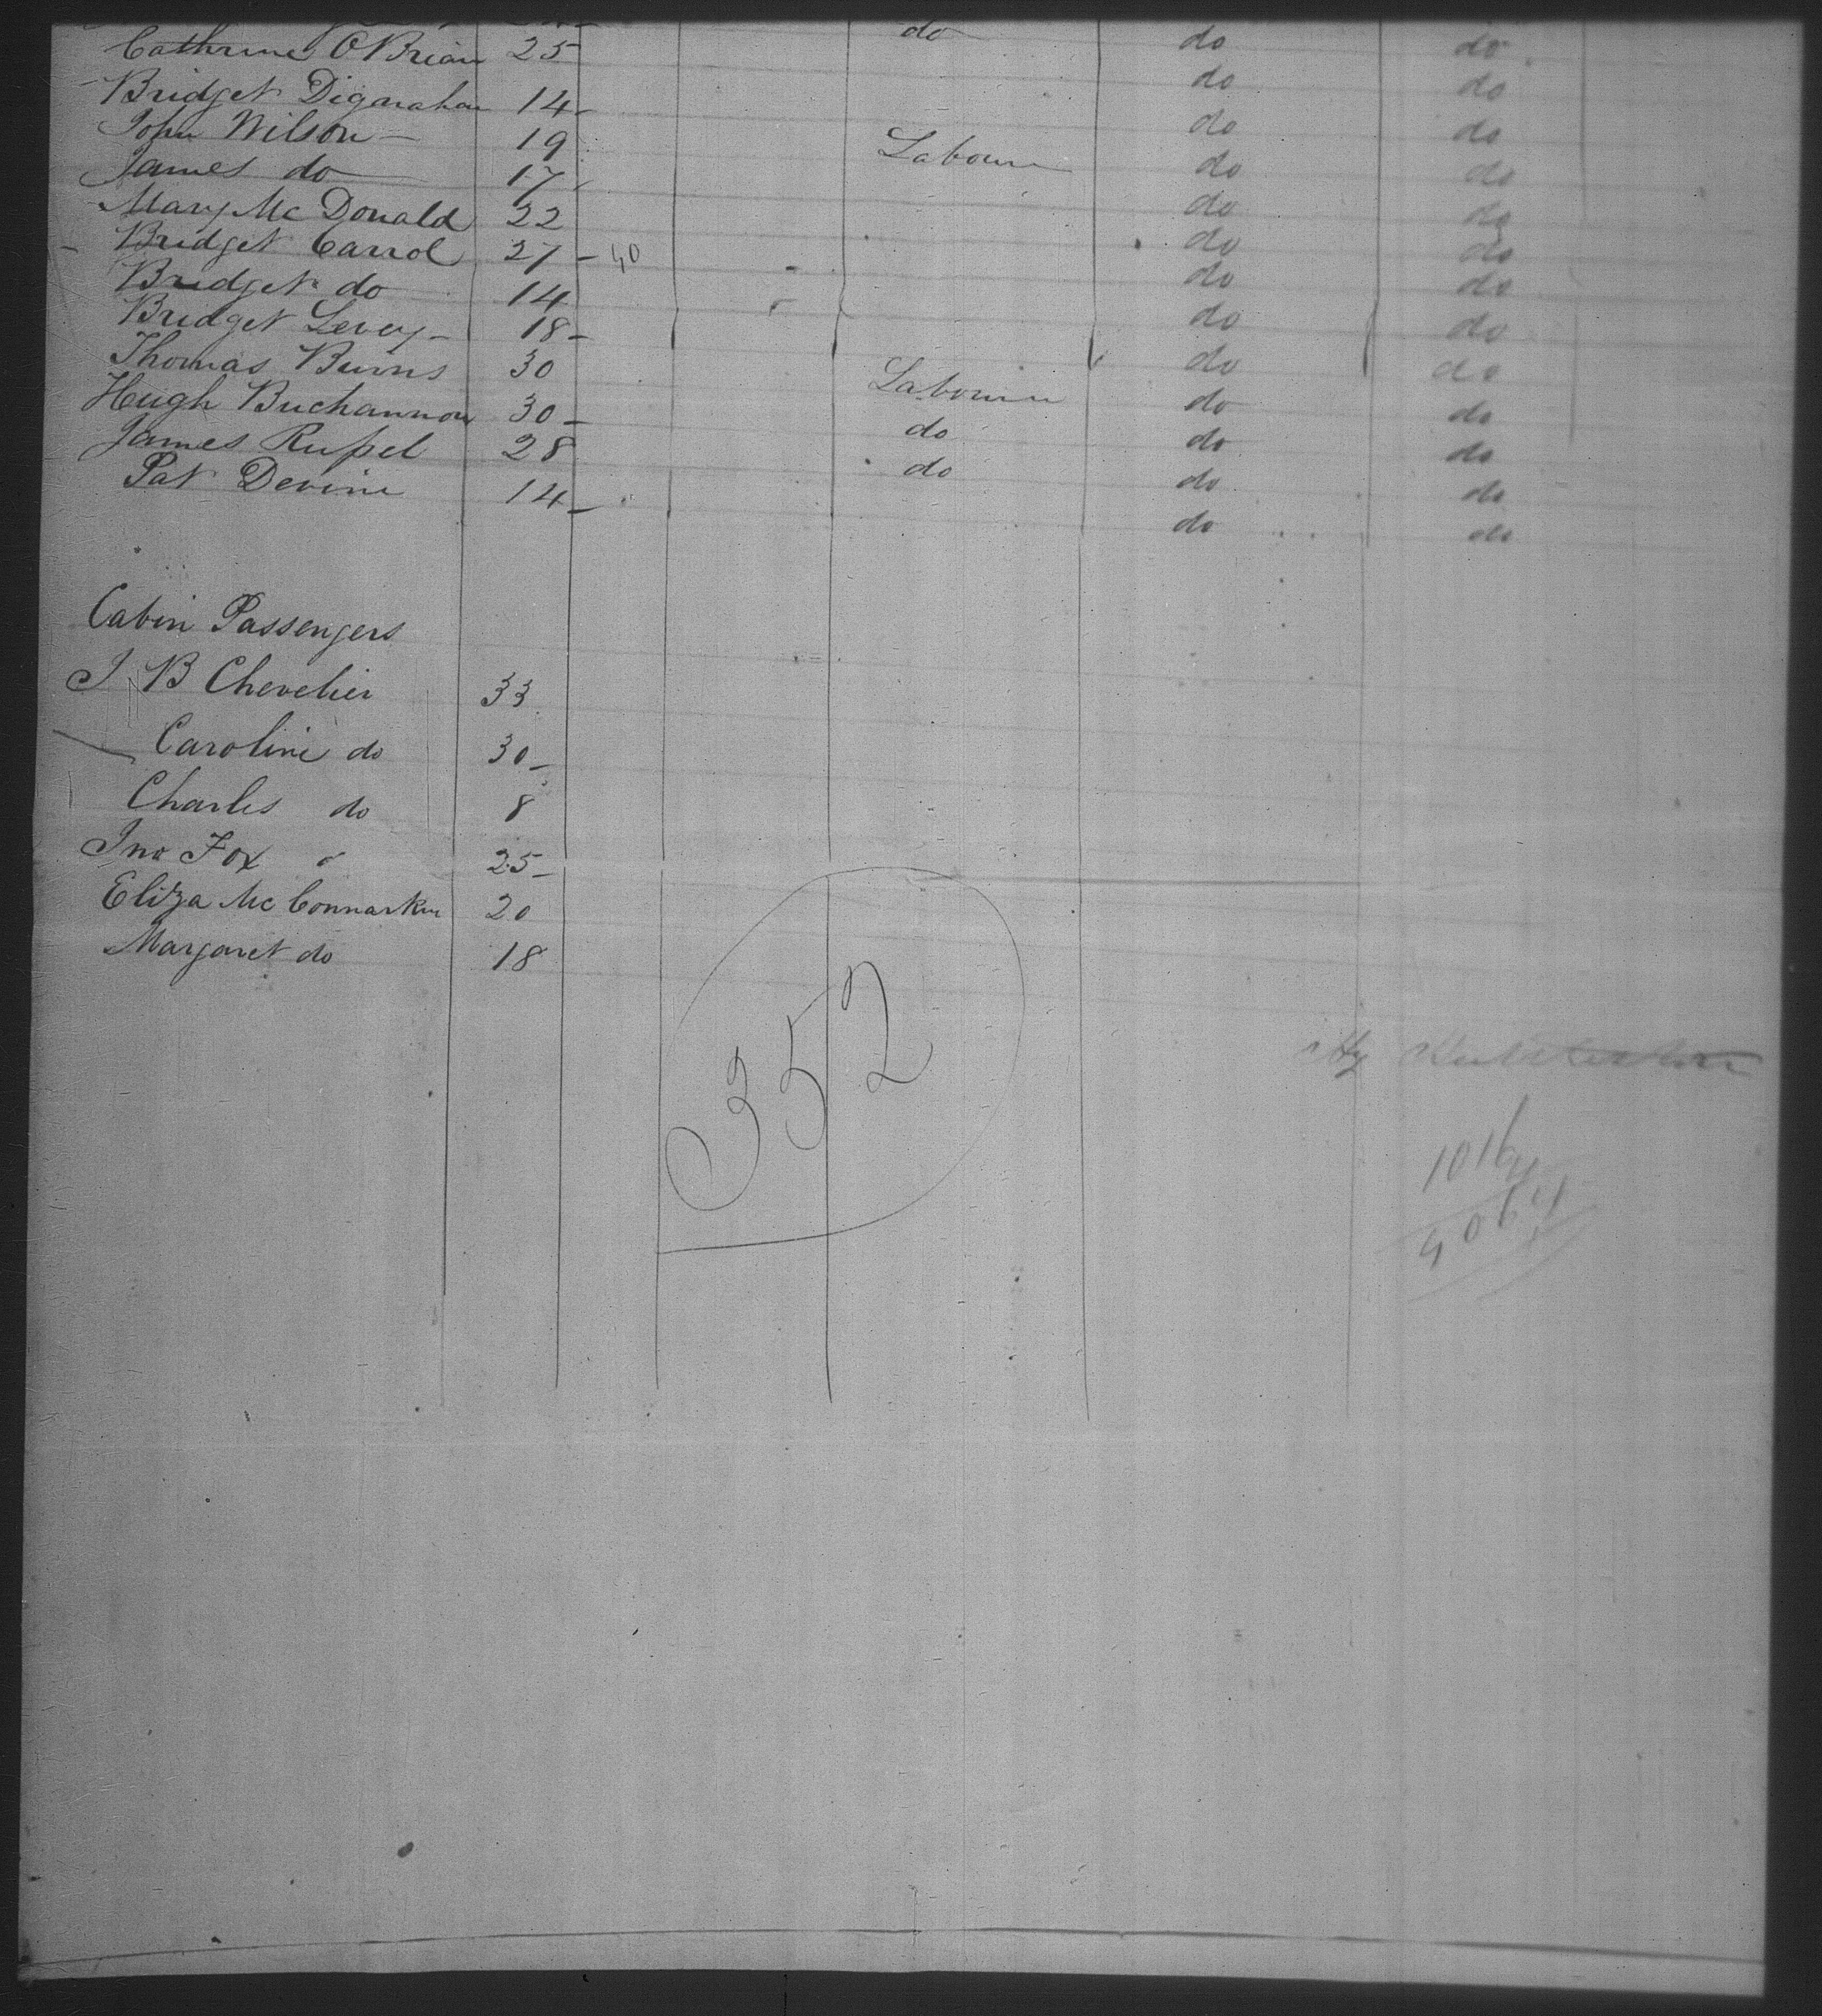 do do do
Cathrine O Brian 25 do do
Bridget Dignahan 14 do do
John Wilson 19 Labourer do do
James do 17 do do
Mary Mc Donald 22 do do
Bridget Carrol 27 40 do do
Bridget do 14 do do
Bridget Levey 18 do do
Thomas Burns 30 Labourer do do
Hugh Buchannon 30 do do do
James Rufsel 28 do do do
Pat Devine 14 do do
Cabin Passengers
J B Chevelier 33
Caroline do 30
Charles do 8
Jno Fox 25
Eliza Mc 20
Margaret do 18
352